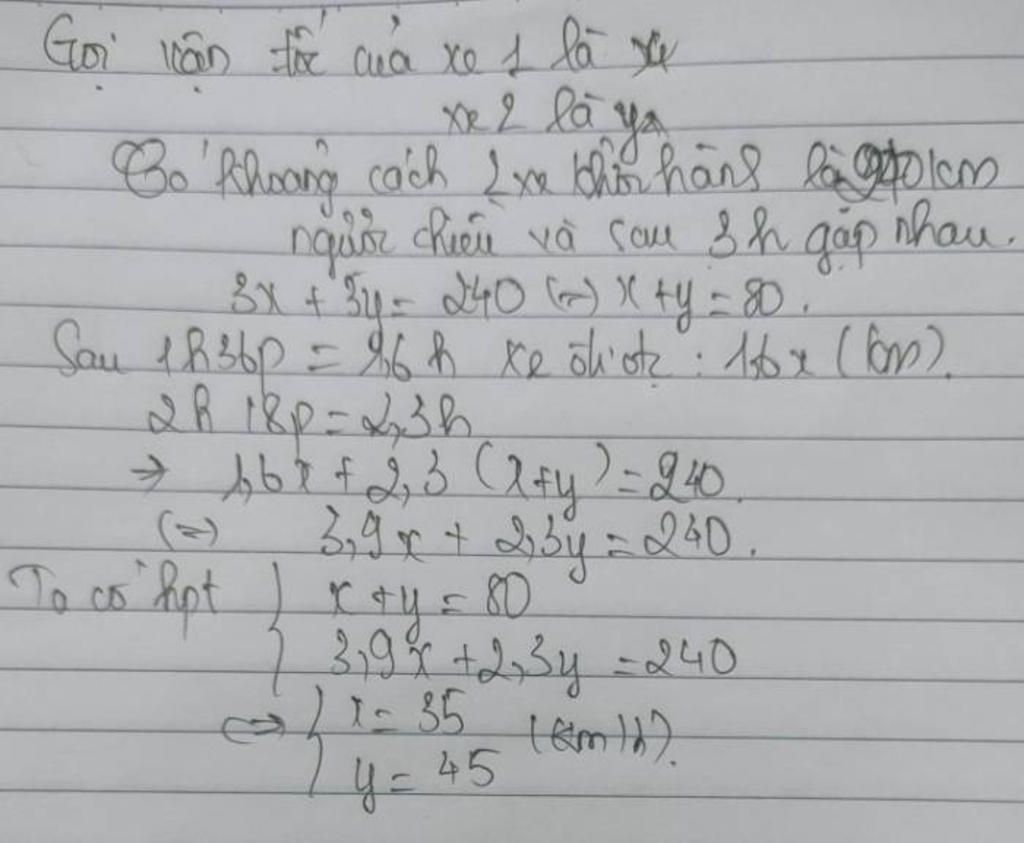 Gọi vận tốc của xe 1 là x
xe 2 là y
Có khoảng cách 2 xe khởi hành là 240km
ngược chiều và sau 3h gặp nhau.
3x + 3y = 240 (=) x + y = 80.
Sau 1h36p = 1,6h xe đi đc : 1,6x (km).
2h 18p = 2,3h
→ 1,6x + 2,3 (x+y) = 240.
(=) 3,9x + 2,3y = 240.
Ta có hpt { x + y = 80
3,9x + 2,3y = 240
<=> { x = 35 (km/h).
y = 45